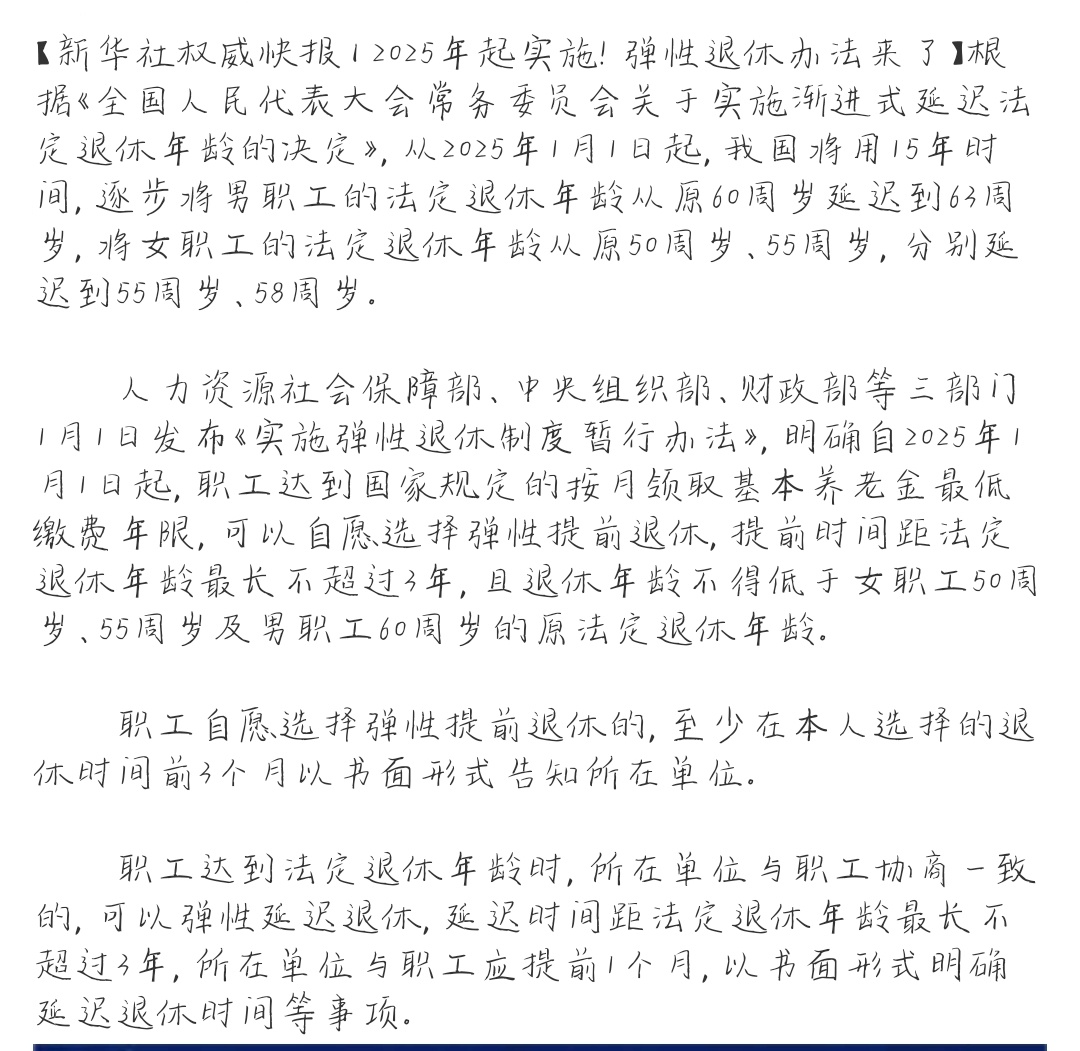 【新华社权威快报|2025年起实施!弹性退休办法来了】根
据《全国人民代表大会常务委员会关于实施渐进式延迟法
定退休年龄的决定》,从2025年1月1日起,我国将用15年时
间,逐步将男职工的法定退休年龄从原60周岁延迟到63周
岁,将女职工的法定退休年龄从原50周岁、55周岁,分别延
迟到55周岁、58周岁。
人力资源社会保障部、中央组织部、财政部等三部门
1月1日发布《实施弹性退休制度暂行办法》,明确自2025年1
月1日起,职工达到国家规定的按月领取基本养老金最低
缴费年限,可以自愿选择弹性提前退休,提前时间距法定
退休年龄最长不超过3年,且退休年龄不得低于女职工50周
岁、55周岁及男职工60周岁的原法定退休年龄。
职工自愿选择弹性提前退休的,至少在本人选择的退
休时间前3个月以书面形式告知所在单位。
职工达到法定退休年龄时,所在单位与职工协商一致
的,可以弹性延迟退休,延迟时间距法定退休年龄最长不
超过3年,所在单位与职工应提前1个月,以书面形式明确
延迟退休时间等事项。